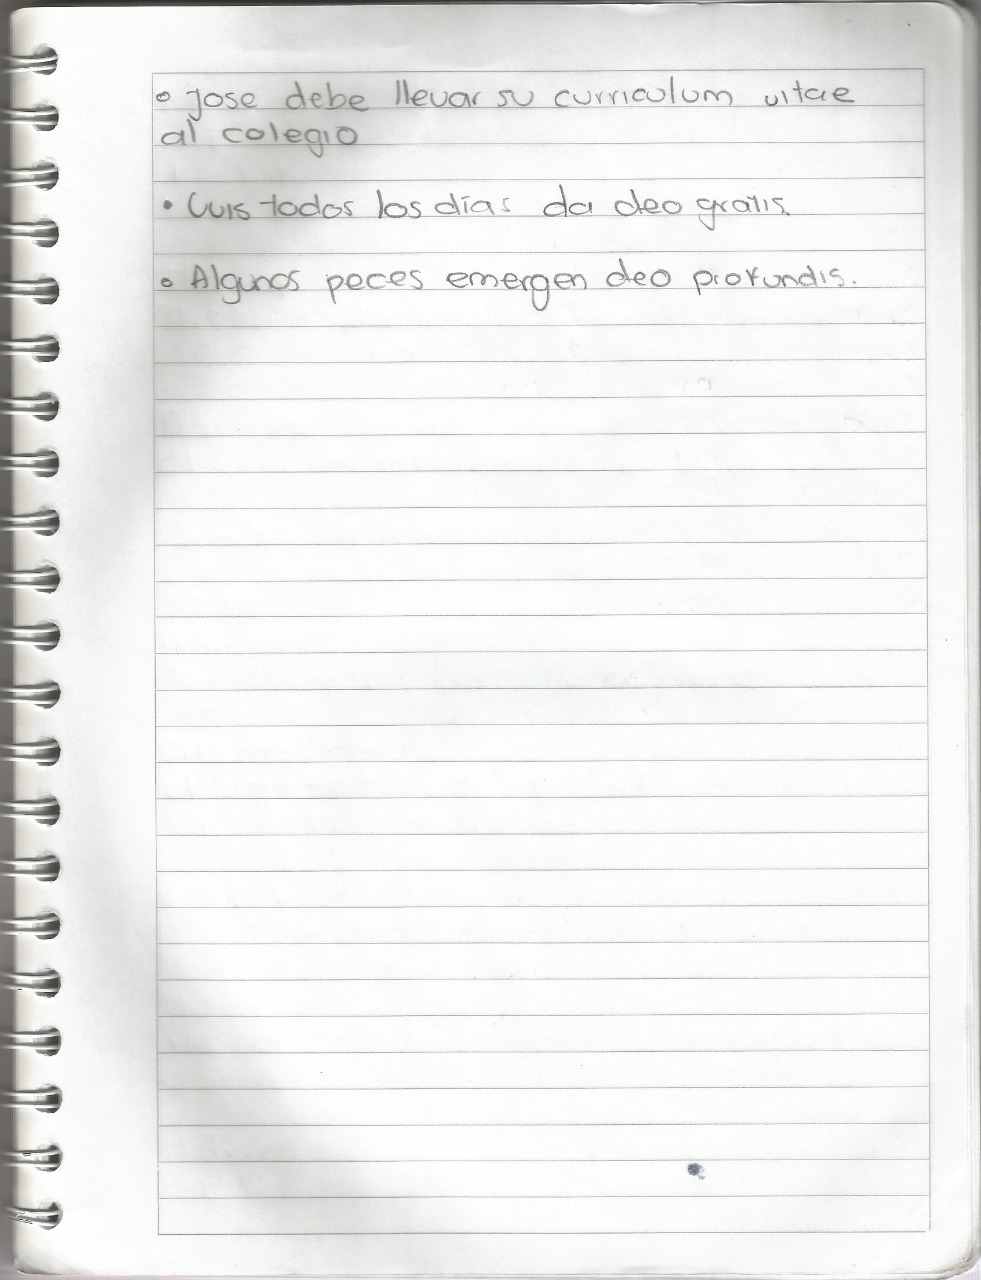 • Jose debe llevar su curriculum vitae
al colegio
• Luis todos los días da deo gratis.
• Algunos peces emergen deo profundis.